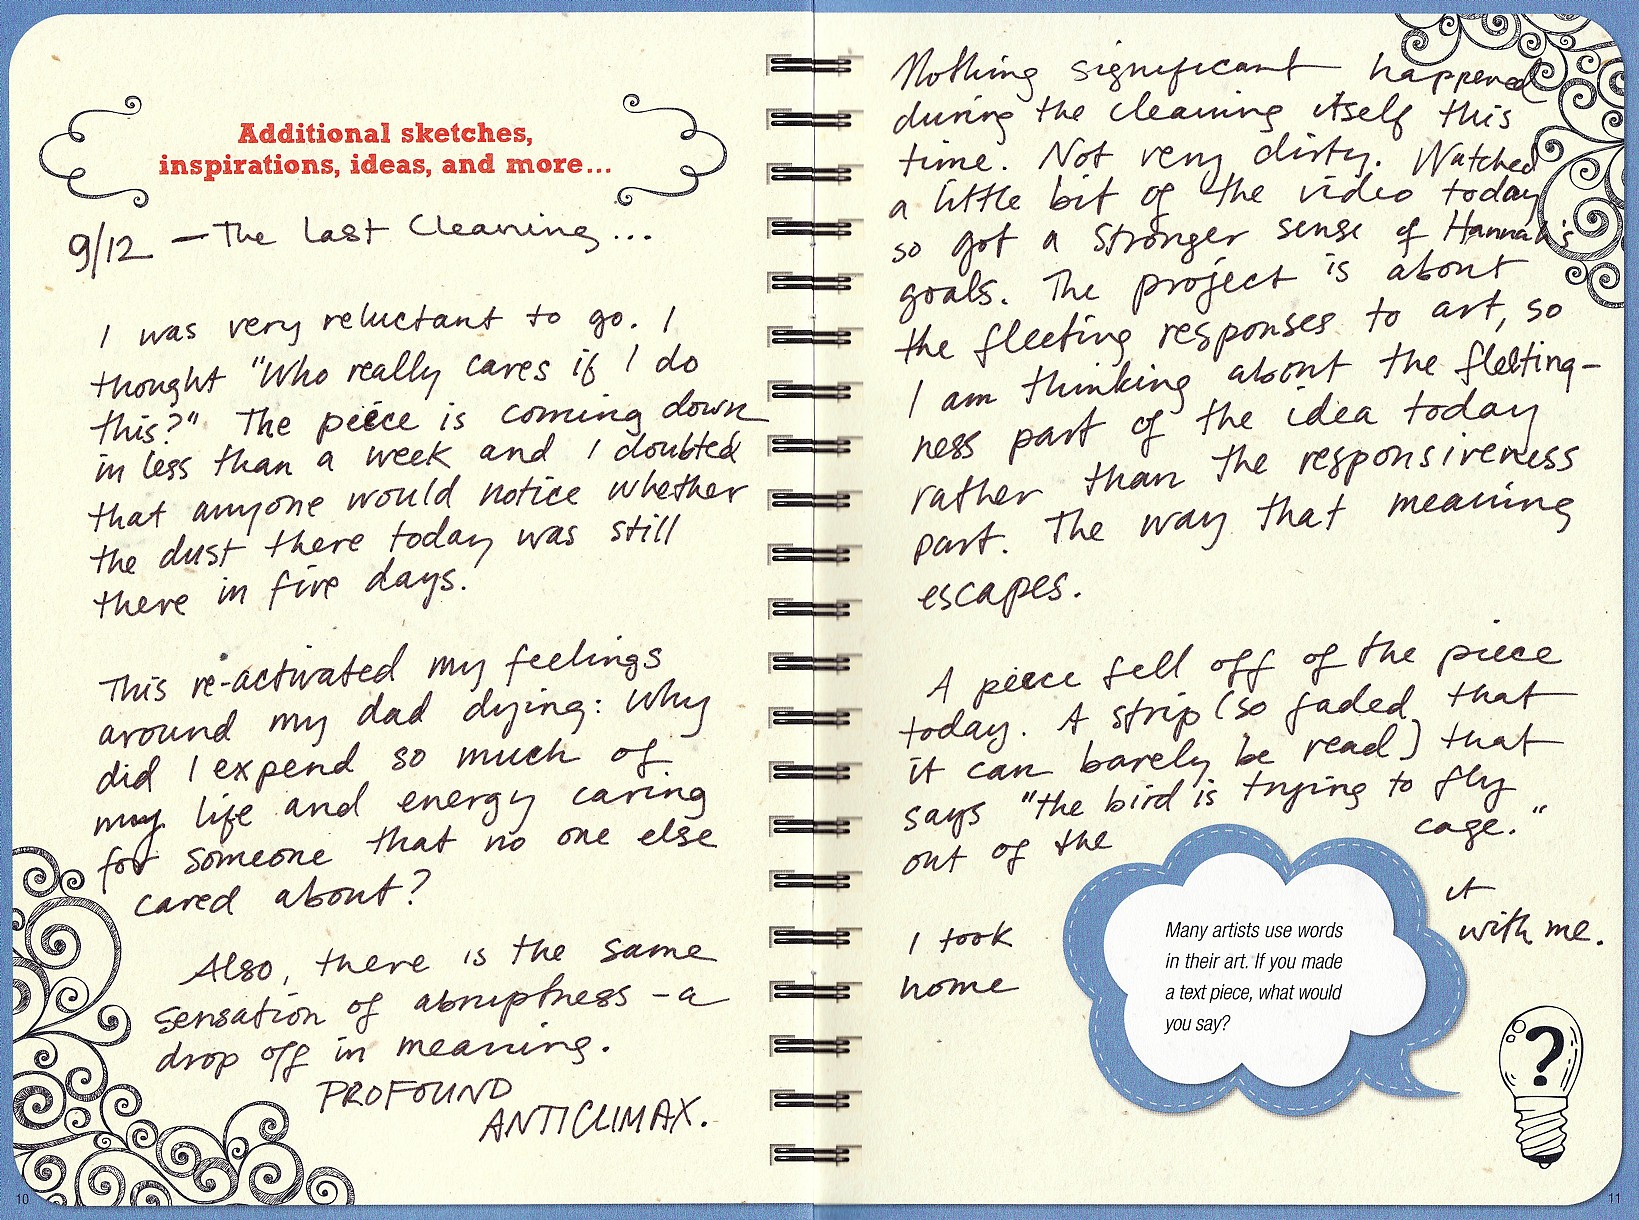 Additional sketches,
inspirations, ideas, and more...
9/12 — The Last Cleaning...
I was very reluctant to go. I
thought "Who really cares if I do
this?" The piece is coming down
in less than a week and I doubted
that anyone would notice whether
the dust there today was still
there in five days.
This re-activated my feelings
around my dad dying: Why
did I expend so much of
my life and energy caring
for someone that no one else
cared about?
Also, there is the same
sensation of abruptness - a
drop off in meaning.
PROFOUND
ANTICLIMAX.
10
Nothing significant happened
during the cleaning itself this
time. Not very dirty. Watched
a little bit of the video today
so got a stronger sense of Hannah's
goals. The project is about
the fleeting responses to art, so
I am thinking about the fleeting-
ness part of the idea today
rather than the responsiveness
part. The way that meaning
escapes.
A piece fell off of the piece
today. A strip (so faded that
it can barely be read) that
says "the bird is trying to fly
out of the cage."
I took it
home with me.
Many artists use words
in their art. If you made
a text piece, what would
you say?
?
11